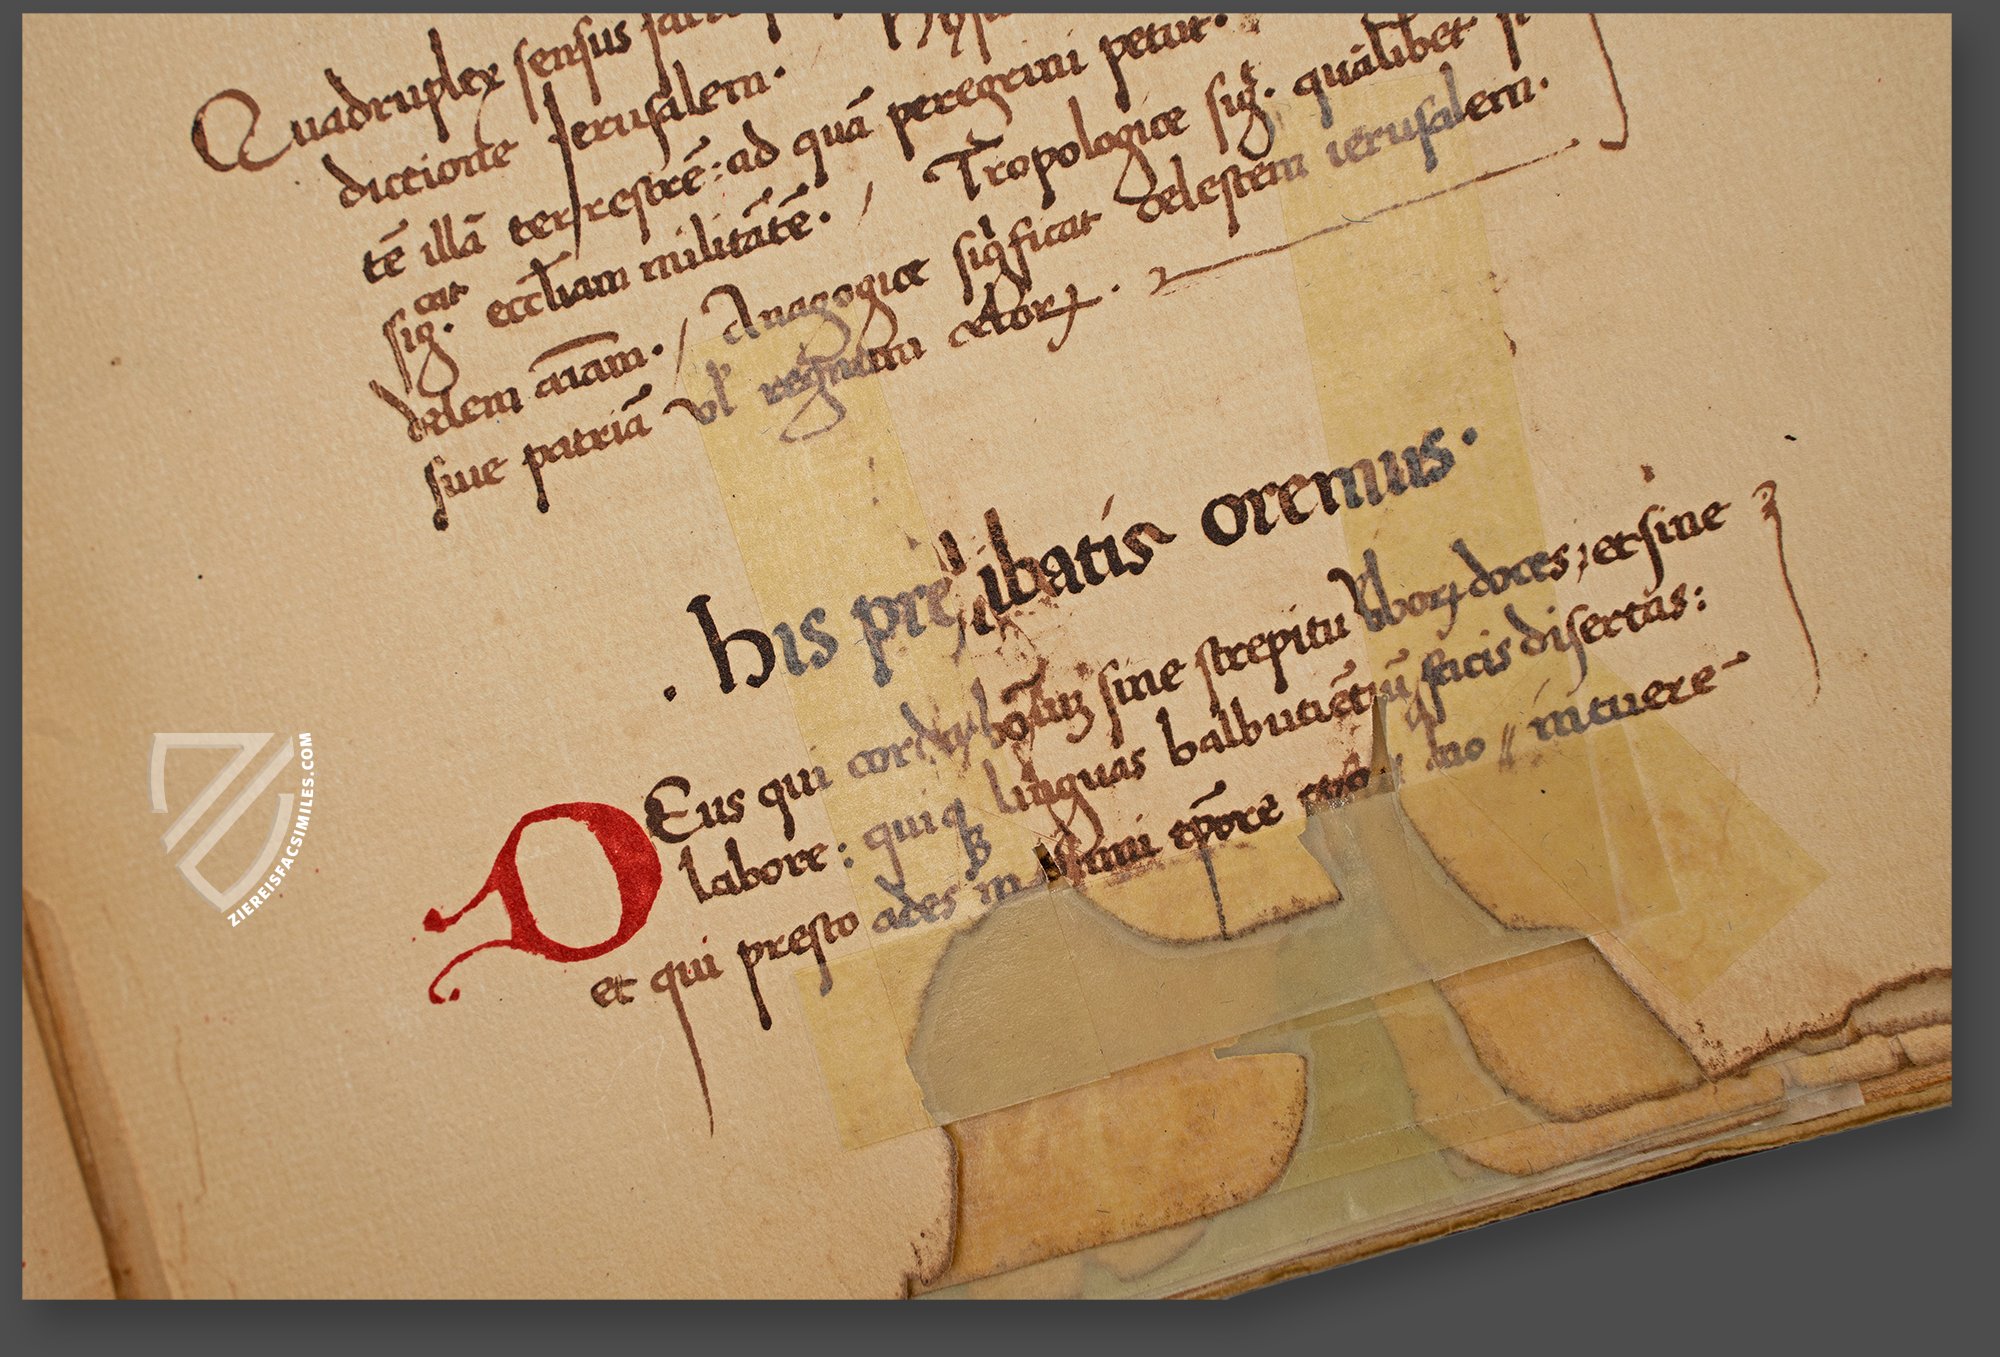 Quadruplex sensus
dictione Jerusalem.
tē illā terrestrē: ad quā peregrini petūt.
sig.cat eccl̄iam militātē. / Tropologice sig.t quālibet
delem aīam. / Anagogice sigīficat celestem ierusalem.
siue patriā vl' regnum celorꝝ.
. his pręlibatis oremus.
DEus qui corda hoīum sine strepitu libroꝝ doces; et sine
labore: quiq linguas balbutiētiū facis disertas:
et qui presto ades in
ZIEREISFACSIMILES.COM